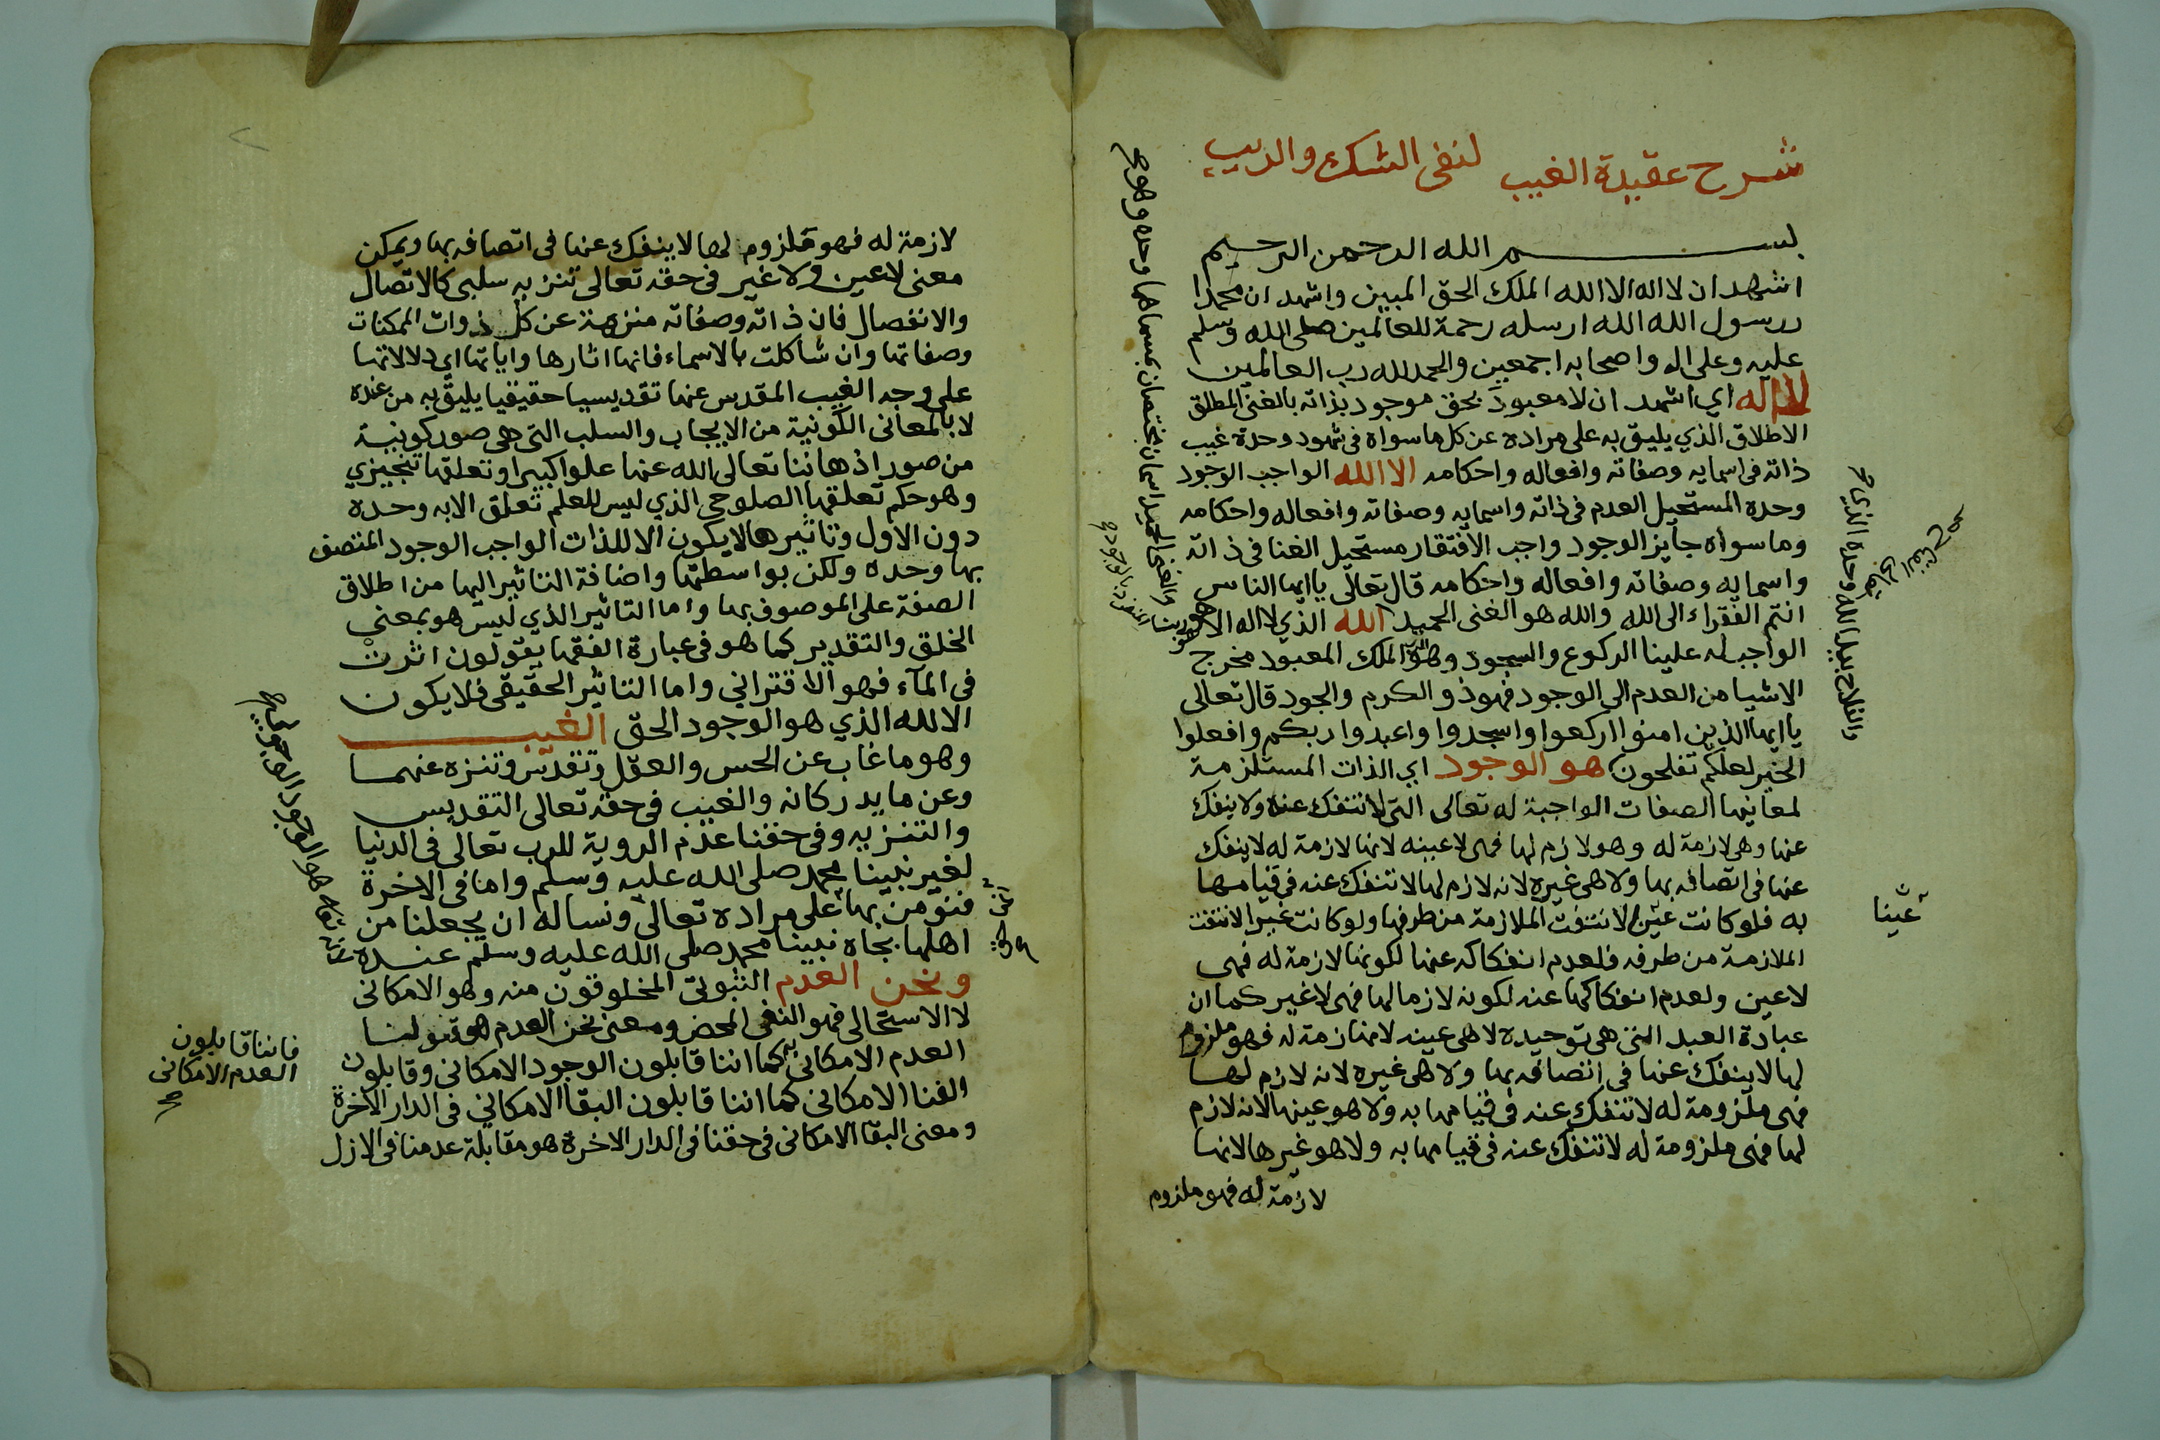 شرح عقيدة الغيب لنفى الشك والريب
بسم الله الرحمن الرحيم
اشهد ان لا اله الا الله الملك الحق المبين واشهد ان محمدا
رسول الله الله ارسله رحمة للعالمين صلى الله وسلم
عليه وعلى اله واصحابه اجمعين والحمد لله رب العالمين
لا اله اي اشهد ان لا معبود بحق موجود بذاته بالغنى المطلق
الاطلاق الذي يليق به على مراده عن كل ما سواه فى شهود وحدة غيب
ذاته فى اسمايه وصفاته وافعاله واحكامه الا الله الواجب الوجود
وحده المستحيل العدم فى ذاته واسمايه وصفاته وافعاله واحكامه
وما سواه جايز الوجود واجب الافتقار مستحيل الغنا فى ذاته
واسمايه وصفاته وافعاله واحكامه قال تعالى يا ايها الناس
انتم الفقراء الى الله والله هو الغنى الحميد الله الذي لا اله الا هو
الواجب له علينا الركوع والسجود وهو الملك المعبود مخرج
الاشيا من العدم الى الوجود فهو ذو الكرم والجود قال تعالى
يا ايها الذين امنوا اركعوا واسجدوا واعبدوا ربكم وافعلوا
الخير لعلكم تفلحون هو الوجود اي الذات المستلزمة
لمعانيها الصفات الواجبة له تعالى التى لا تنفك عنه ولا ينفك
عنها وهى لازمة له وهو لازم لها فهى لا عينه لانها لازمة له لا ينفك
عنها فى اتصافه بها ولا هى غيره لانه لازم لها لا تنفك عنه فى قيامها
به فلو كانت عين لانتفت الملازمة من طرفها ولو كانت غيرا لانتفت
الملازمة من طرفه فلعدم انفكاكه عنها لكونها لازمة له فهى
لا عين ولعدم انفكاكها عنه لكونه لازما لها فهى لا غير كما ان
عبادة العبد التى هى توحيده لا هى عينه لانها لازمة له فهو ملزوم
لها لا ينفك عنها فى اتصافه بها ولا هى غيره لانه لازم لها
فهى ملزومة له لا تنفك عنه فى قيامها به ولا هو عينها لانه لازم
لها فهى ملزومة له لا تنفك عنه فى قيامها به ولا هو غيرها لانها
لازمة له فهو ملزوم
والغنى الحميد اسمان يختصان بمسماهما وحده وهو
ربنا المنفرد بالوجود
والفلاح بيد الله وحده الذي
عينا
لازمة له فهو ملزوم لها لا ينفك عنها فى اتصافه بها ويمكن
معنى لا عين ولا غير فى حقه تعالى تنزيه سلبى كالاتصال
والانفصال فان ذاته وصفاته منزهة عن كل ذوات الممكنات
وصفاتها وان شاكلت بالاسماء فانها اثارها واياتها اي دلالاتها
على وجه الغيب المقدس عنها تقديسيا حقيقيا يليق به من عنده
لا بالمعانى الكونية من الايجاب والسلب التى هى صور كونية
من صور اذهاننا تعالى الله عنها علوا كبيرا وتعلقها تنجيزي
وهو حكم تعلقها الصلوحى الذي ليس للعلم تعلق الا به وحده
دون الاول وتاثيرها لا يكون الا للذات الواجب الوجود المتصف
بها وحده ولكن بواسطتها واضافة التاثير اليها من اطلاق
الصفة على الموصوف بها واما التاثير الذي ليس هو بمعنى
الخلق والتقدير كما هو فى عبارة الفقها يقولون اثرت
فى المآء فهو الاقترانى واما التاثير الحقيقى فلا يكون
الا لله الذي هو الوجود الحق الغيب
وهو ما غاب عن الحس والعقل وتقدس وتنزه عنهما
وعن ما يدركانه والغيب فى حقه تعالى التقديس
والتنزيه وفى حقنا عدم الروية للرب تعالى فى الدنيا
لغير نبينا محمد صلى الله عليه وسلم واما فى الاخرة
فنؤمن بها على مراده تعالى ونساله ان يجعلنا من
اهلها بجاه نبينا محمد صلى الله عليه وسلم عنده
ونحن العدم الثبوتى المخلوقون منه وهو الامكانى
لا الاستحالى فهو النفى المحض ومعنى نحن العدم هو قبولنا
العدم الامكانى كما اننا قابلون الوجود الامكانى وقابلون
الفنا الامكانى كما اننا قابلون البقا الامكانى فى الدار الاخرة
ومعنى البقا الامكانى فى حقنا فى الدار الاخرة هو مقابلة عدمنا فى الازل
فاننا قابلون
العدم الامكانى